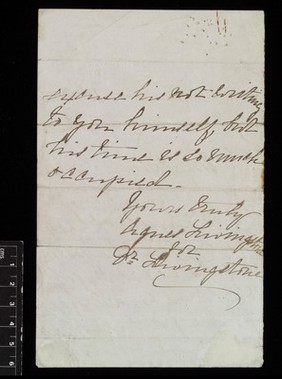 excuse his not writing
to you himself, but
his time is so much
occupied.
Yours truly
Agnes Livingstone
for
Dr. Livingstone